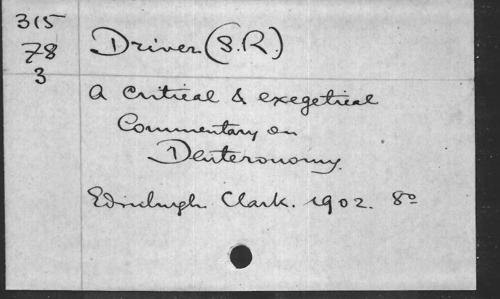 315
78
3
Driver (S.R.)
A Critical & exegetical
Commentary on
Deuteronomy.
Edinburgh Clark. 1902. 8o